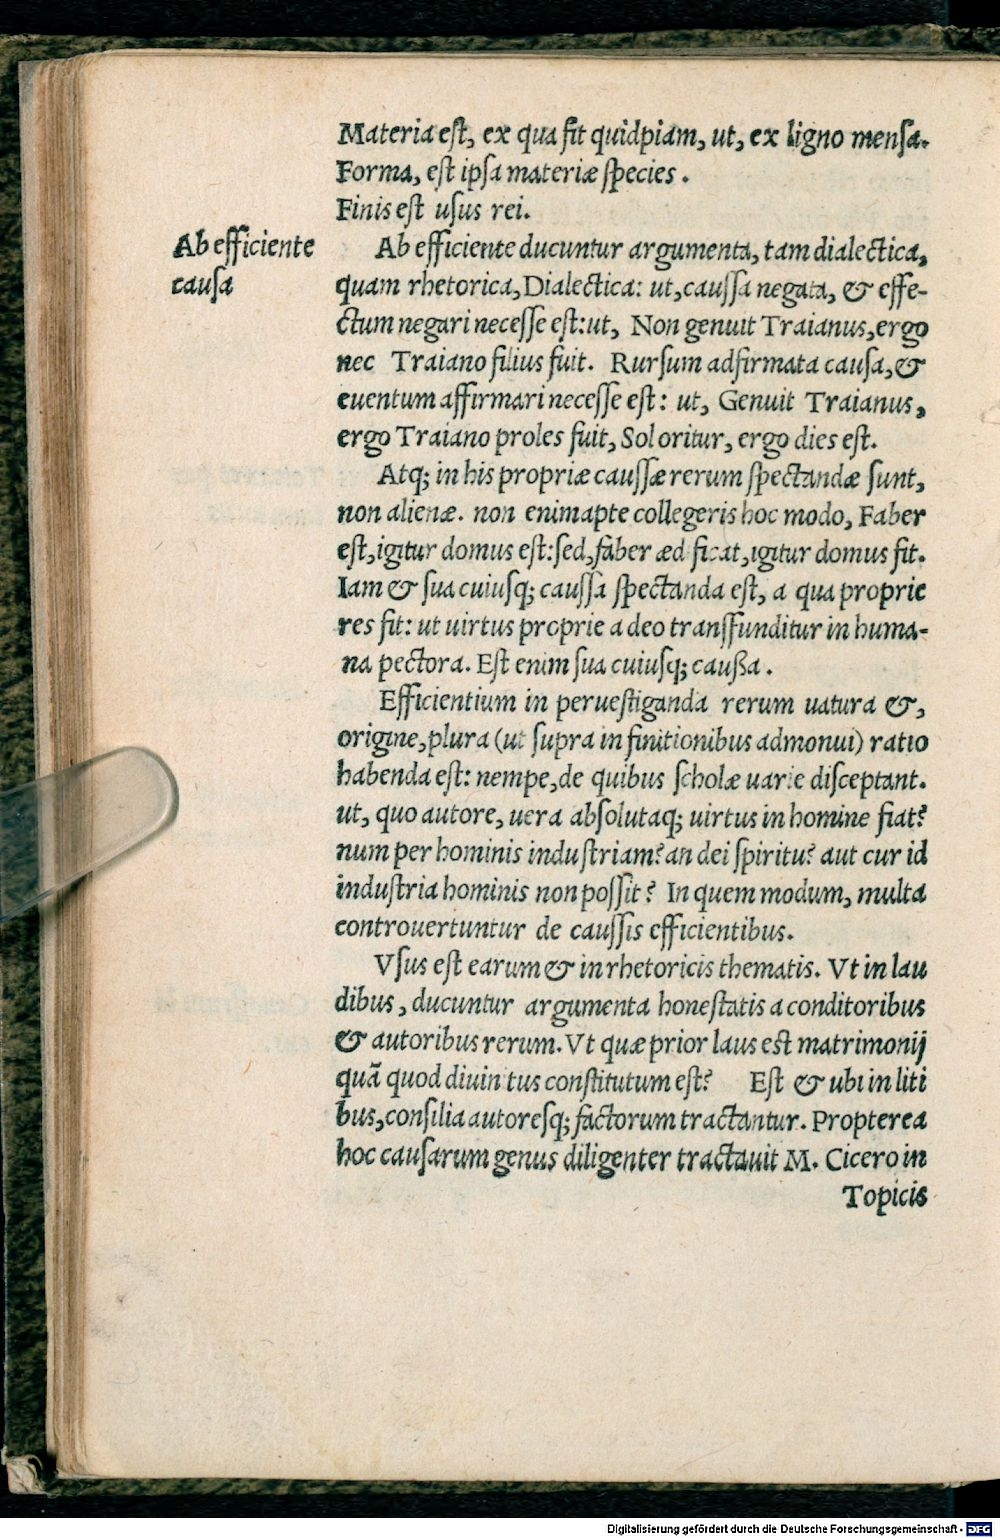 Materia eſt, ex qua fit quidpiam, ut, ex ligno menſa.
Forma, eſt ipſa materiæ ſpecies.
Finis eſt uſus rei.
Ab efficiente
cauſa
Ab efficiente ducuntur argumenta, tam dialectica,
quam rhetorica, Dialectica: ut, cauſſa negata, & effe-
ctum negari neceſſe eſt: ut, Non genuit Traianus, ergo
nec Traiano filius fuit. Rurſum adfirmata cauſa, &
euentum affirmari neceſſe est: ut, Genuit Traianus,
ergo Traiano proles fuit, Sol oritur, ergo dies eſt.
Atq; in his propriæ cauſſæ rerum ſpectandæ ſunt,
non alienæ. non enim apte collegeris hoc modo, Faber
eſt, igitur domus eſt: ſed, faber ædificat, igitur domus fit.
Iam & ſua cuiuſq; cauſſa ſpectanda eſt, a qua proprie
res fit: ut uirtus proprie a deo tranſfunditur in huma-
na pectora. Eſt enim ſua cuiuſq; caußa.
Efficientium in perueſtiganda rerum uatura &,
origine, plura (ut ſupra in finitionibus admonui) ratio
habenda est: nempe, de quibus ſcholæ uarie diſceptant.
ut, quo autore, uera abſolutaq; uirtus in homine fiat?
num per hominis induſtriam? an dei ſpiritu? aut cur id
induſtria hominis non poſſit? In quem modum, multa
controuertuntur de cauſſis efficientibus.
Vſus eſt earum & in rhetoricis thematis. Vt in lau
dibus, ducuntur argumenta honeſtatis a conditoribus
& autoribus rerum. Vt quæ prior laus est matrimonij
quã quod diuintus conſtitutum eſt? Eſt & ubi in liti
bus, conſilia autoreſq; factorum tractantur. Propterea
hoc cauſarum genus diligenter tractauit M. Cicero in
Topicis
Digitalisierung gefördert durch die Deutsche Forschungsgemeinschaft - DFG